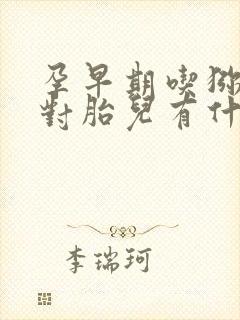 孕早期喫猕
對胎兒有什
李瑞珂